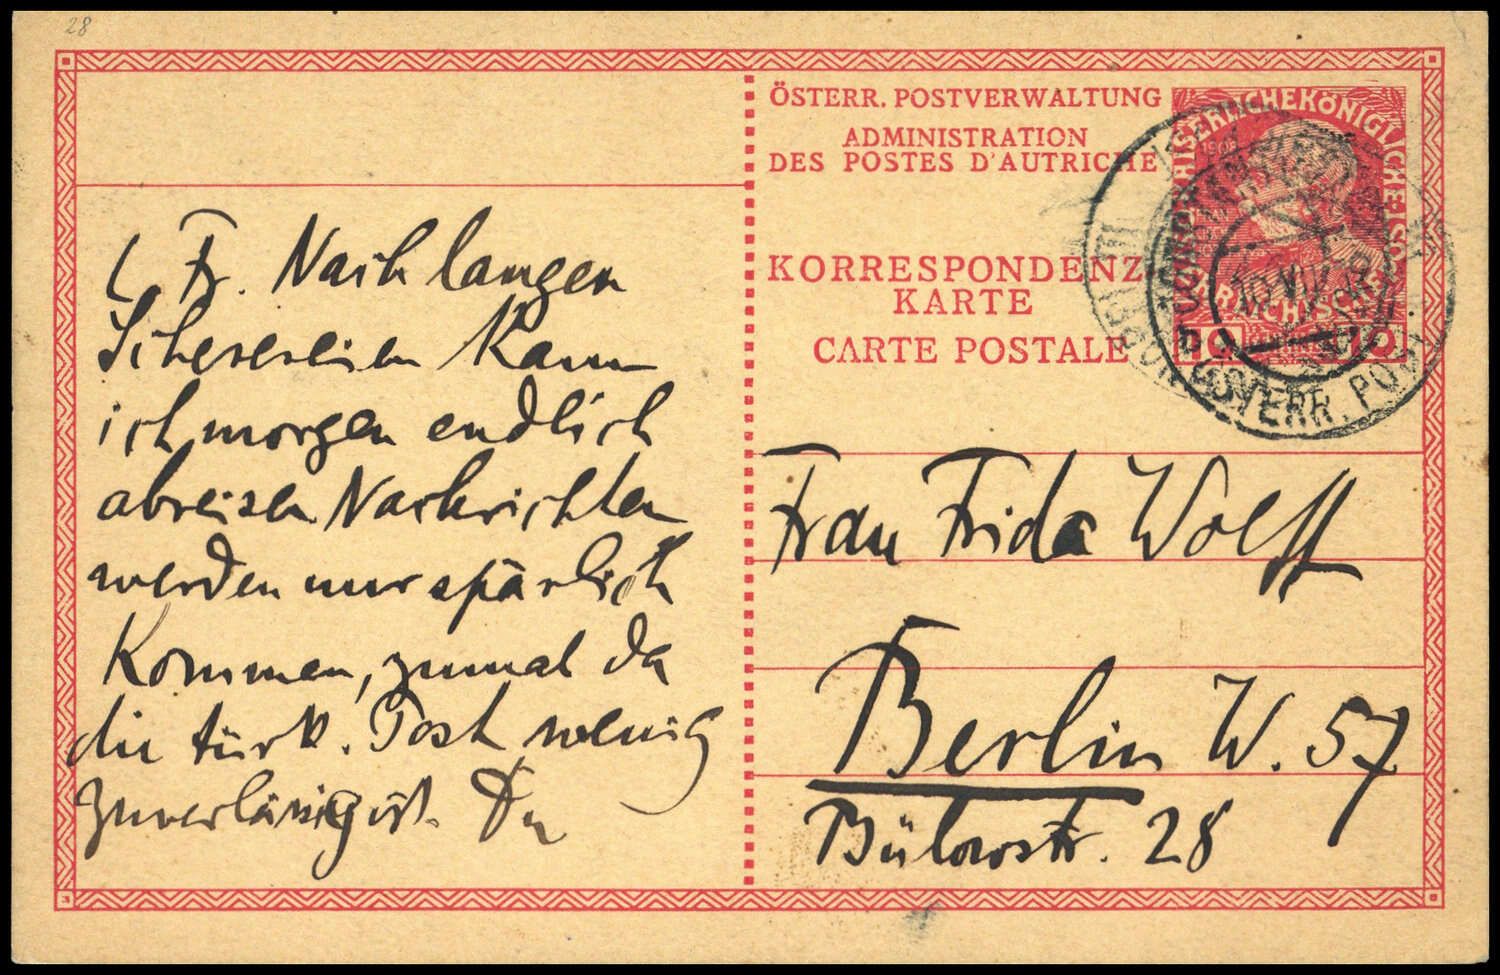 28
L. Fr. Nach langen
Scherereien kann
ich morgen endlich
abreisen Nachrichten
werden nur spärlich
kommen, zumal da
die türk. Post wenig
zuverlässig ist. Du
ÖSTERR. POSTVERWALTUNG
ADMINISTRATION
DES POSTES D'AUTRICHE
KORRESPONDENZ
KARTE
CARTE POSTALE
KAISERLICHE KÖNIGLICHE
ÖSTERREICHISCHE POST
1908
10 10
ÖSTERR. POST
Frau Frida Wolff
Berlin W. 57
Bülowstr. 28